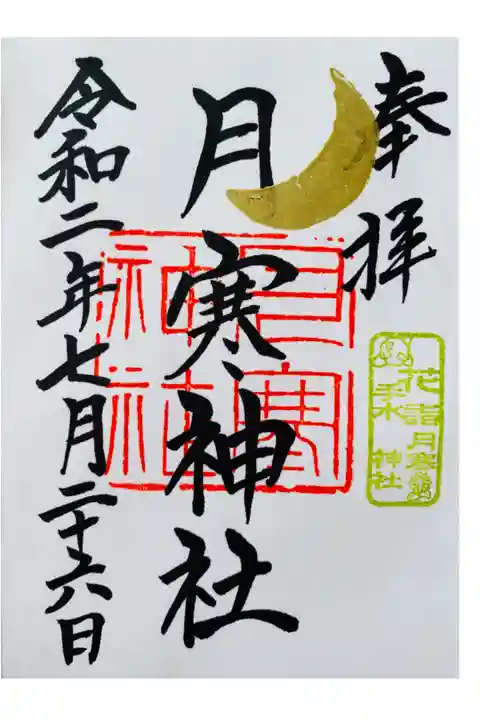 奉拝
花手水詣
月寒神社
月寒神社
月寒神社
令和二年七月二十六日